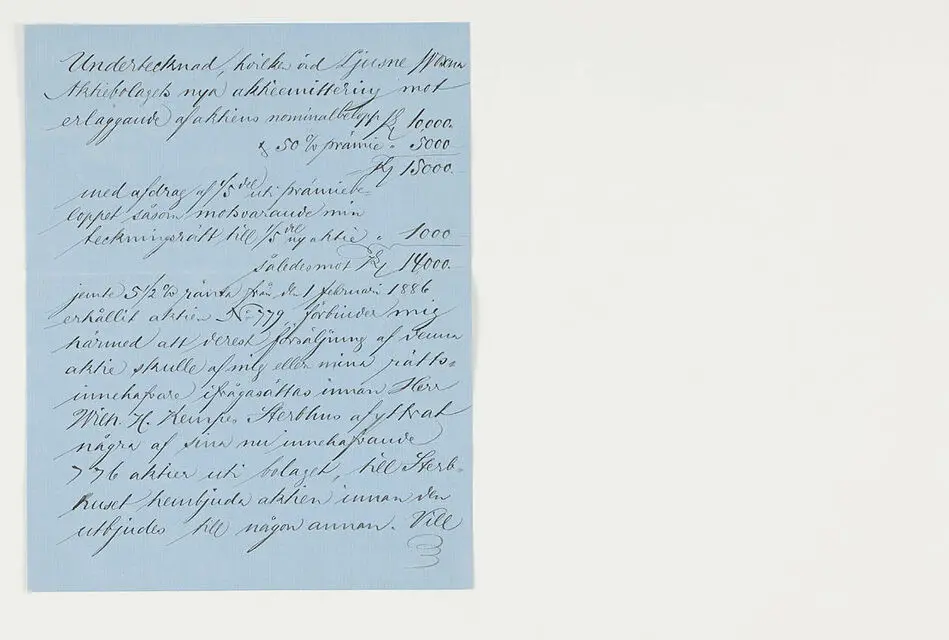 Undertecknad, hvilken vid Ljusne Woxna
Aktiebolagets nya aktieemittering mot
erläggande af aktiens nominalbelopp Kr 10,000.
& 50 % prämie " 5000
Kr 15000.
med afdrag af 1/5 del uti prämiebe-
loppet såsom motsvarande min
teckningsrätt till 1/5 del ny aktie " 1000
således mot Kr 14,000.
jemte 5 1/2 % ränta från den 1 februari 1886
erhållit aktien No 779, förbinder mig
härmed att derest försäljning af denna
aktie skulle af mig eller mina rätts-
innehafvare ifrågasättas innan Herr
Wilh. H. Kempes Sterbhus afyttrat
några af sina nu innehafvande
776 aktier uti bolaget, till Sterb-
huset hembjuda aktien innan den
utbjudes till någon annan. Vill